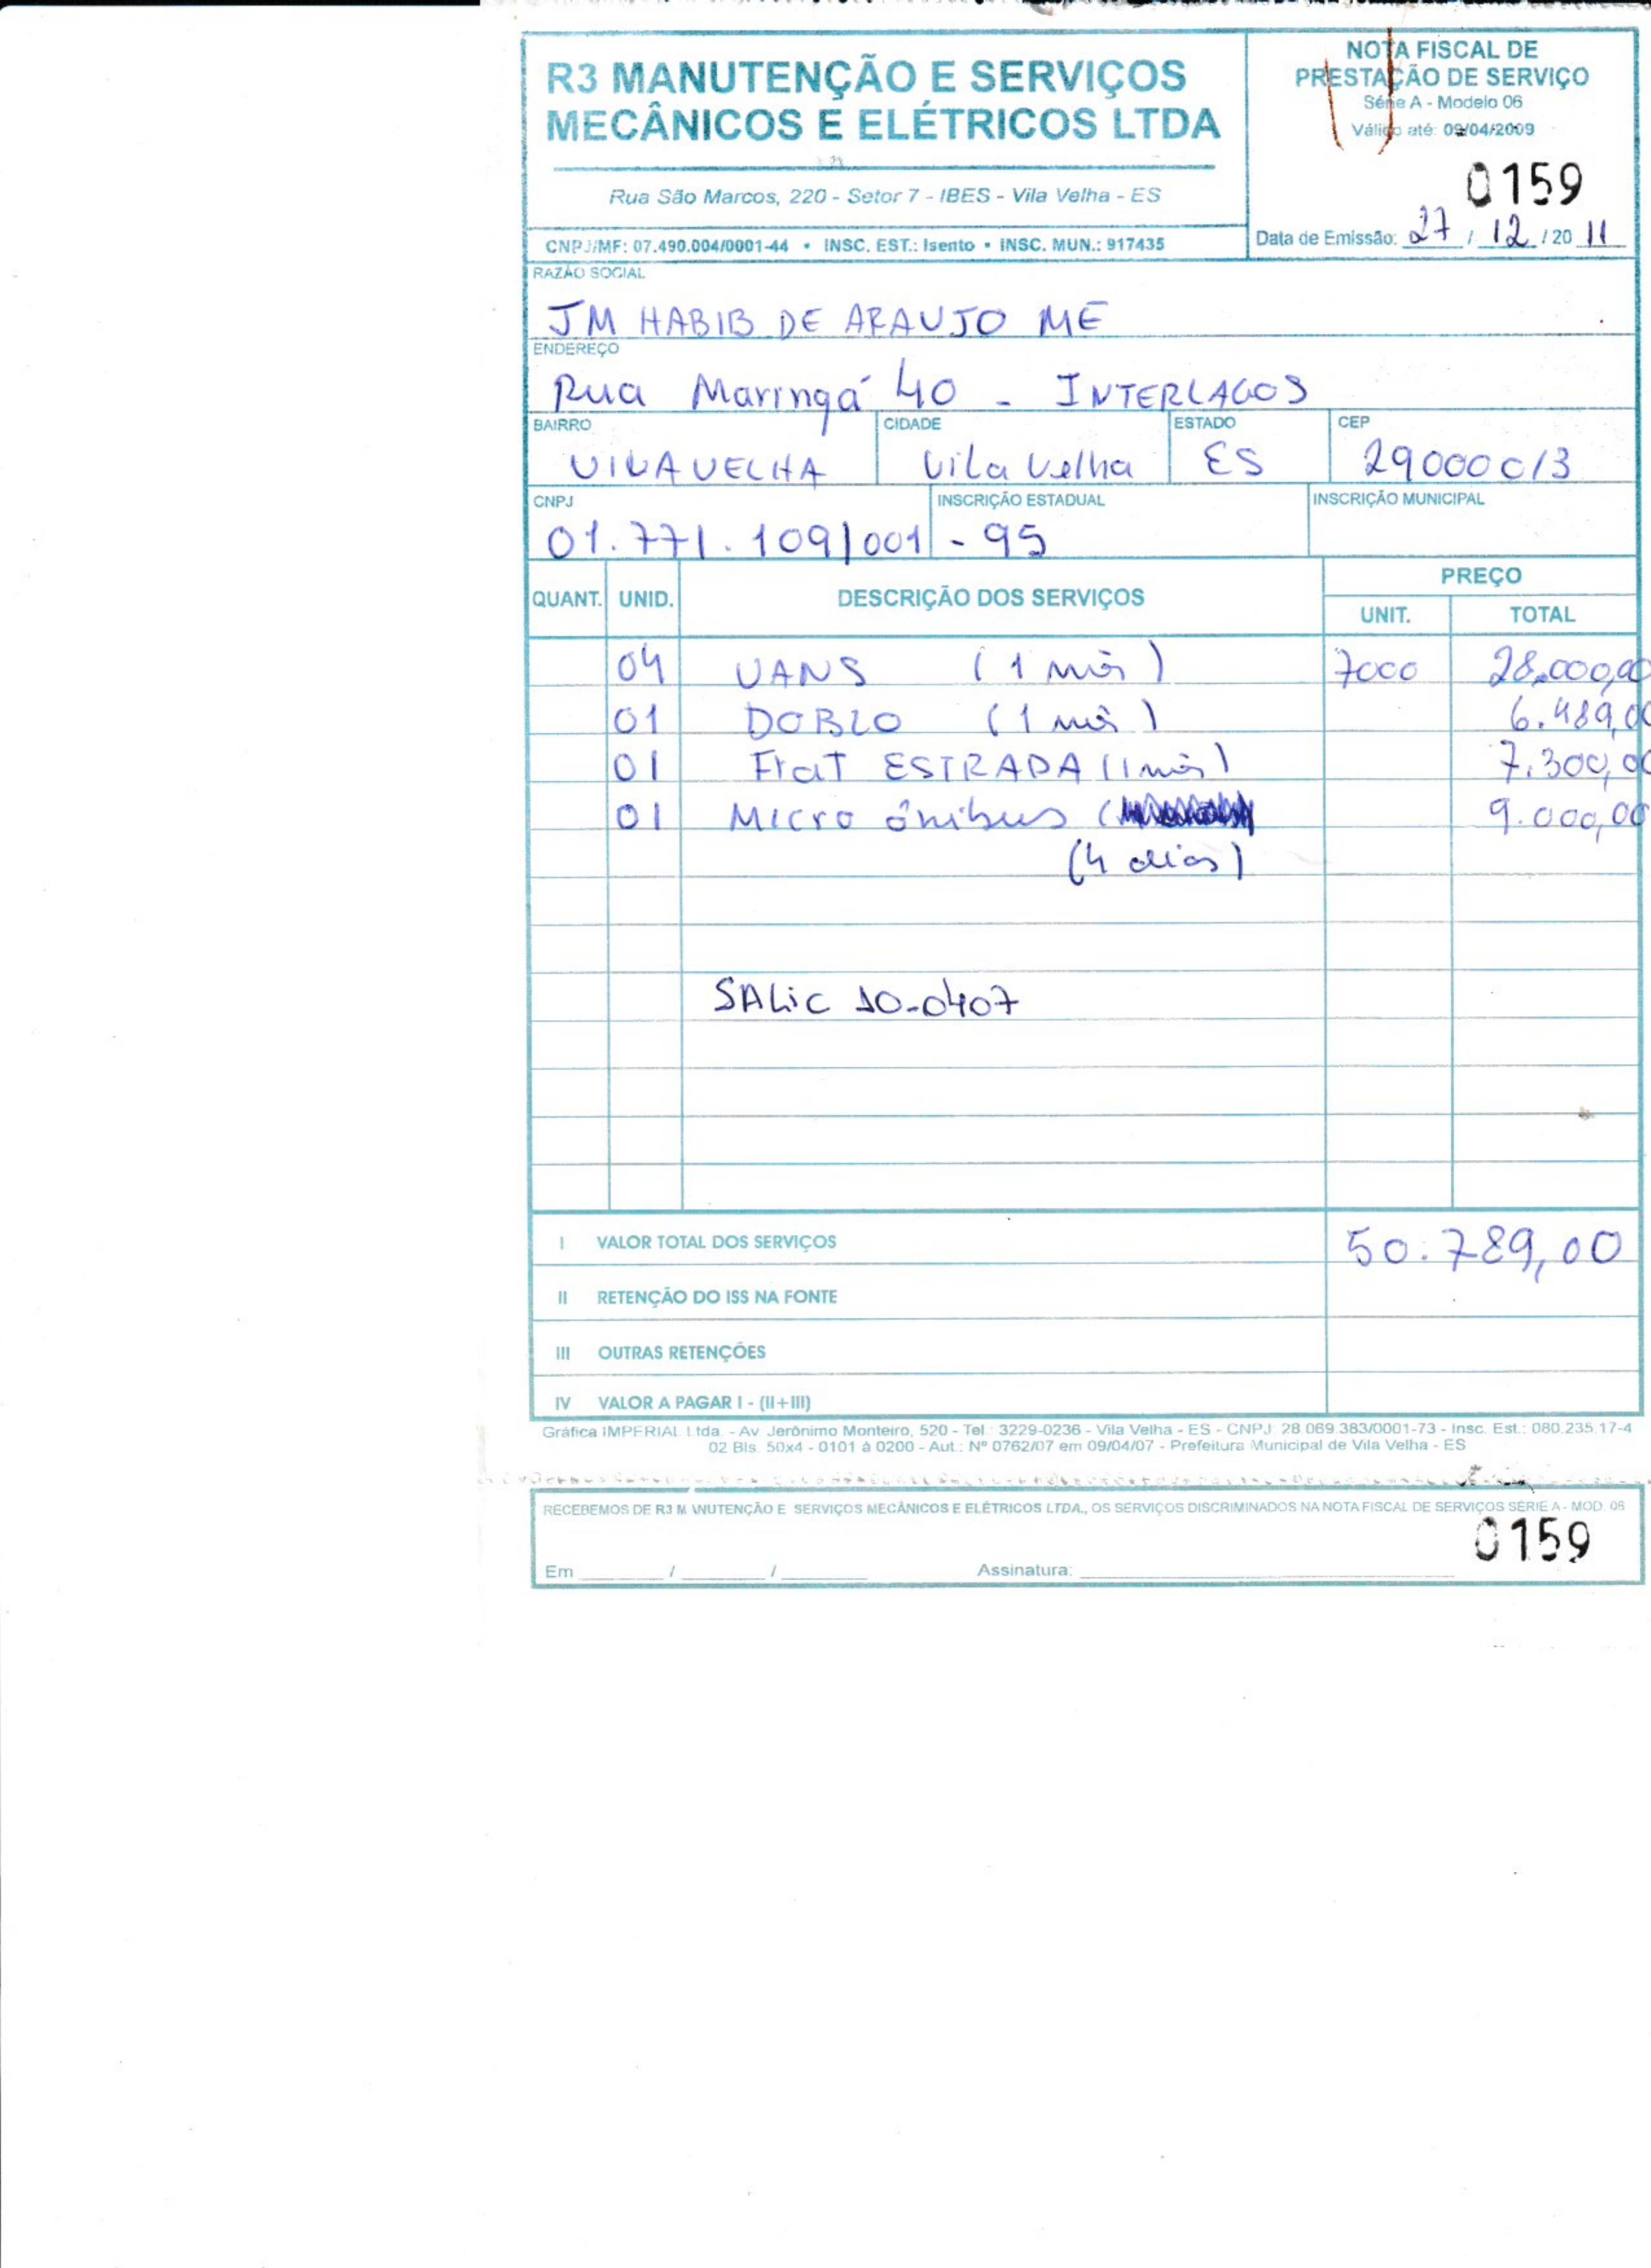 R3 MANUTENÇÃO E SERVIÇOS
MECÂNICOS E ELÉTRICOS LTDA
Rua São Marcos, 220 - Setor 7 - IBES - Vila Velha - ES
CNPJ/MF: 07.490.004/0001-44 • INSC. EST.: Isento • INSC. MUN.: 917435
NOTA FISCAL DE
PRESTAÇÃO DE SERVIÇO
Série A - Modelo 06
Válido até: 09/04/2009
0159
Data de Emissão: 27 / 12 / 20 11
RAZÃO SOCIAL
JM HABIB DE ARAUJO ME
ENDEREÇO
Rua Maringá 40 - INTERLAGOS
BAIRRO CIDADE ESTADO CEP
VILA VELHA Vila Velha ES 29000013
CNPJ INSCRIÇÃO ESTADUAL INSCRIÇÃO MUNICIPAL
01.771.109/001-95
QUANT. UNID. DESCRIÇÃO DOS SERVIÇOS PREÇO
UNIT. TOTAL
04 VANS (1 mês) 7000 28.000,00
01 DOBLO (1 mês) 6.489,00
01 Fiat ESTRADA (1 mês) 7.300,00
01 Micro ônibus ( 9.000,00
(4 dias)
SALIC 10-0407
I VALOR TOTAL DOS SERVIÇOS 50.789,00
II RETENÇÃO DO ISS NA FONTE
III OUTRAS RETENÇÕES
IV VALOR A PAGAR I - (II+III)
Gráfica IMPERIAL Ltda. - Av. Jerônimo Monteiro, 520 - Tel.: 3229-0236 - Vila Velha - ES - CNPJ: 28.069.383/0001-73 - Insc. Est.: 080.235.17-4
02 Bls. 50x4 - 0101 à 0200 - Aut.: Nº 0762/07 em 09/04/07 - Prefeitura Municipal de Vila Velha - ES
RECEBEMOS DE R3 MANUTENÇÃO E SERVIÇOS MECÂNICOS E ELÉTRICOS LTDA., OS SERVIÇOS DISCRIMINADOS NA NOTA FISCAL DE SERVIÇOS SÉRIE A - MOD. 06
0159
Em ____ / ____ / ____ Assinatura: ____